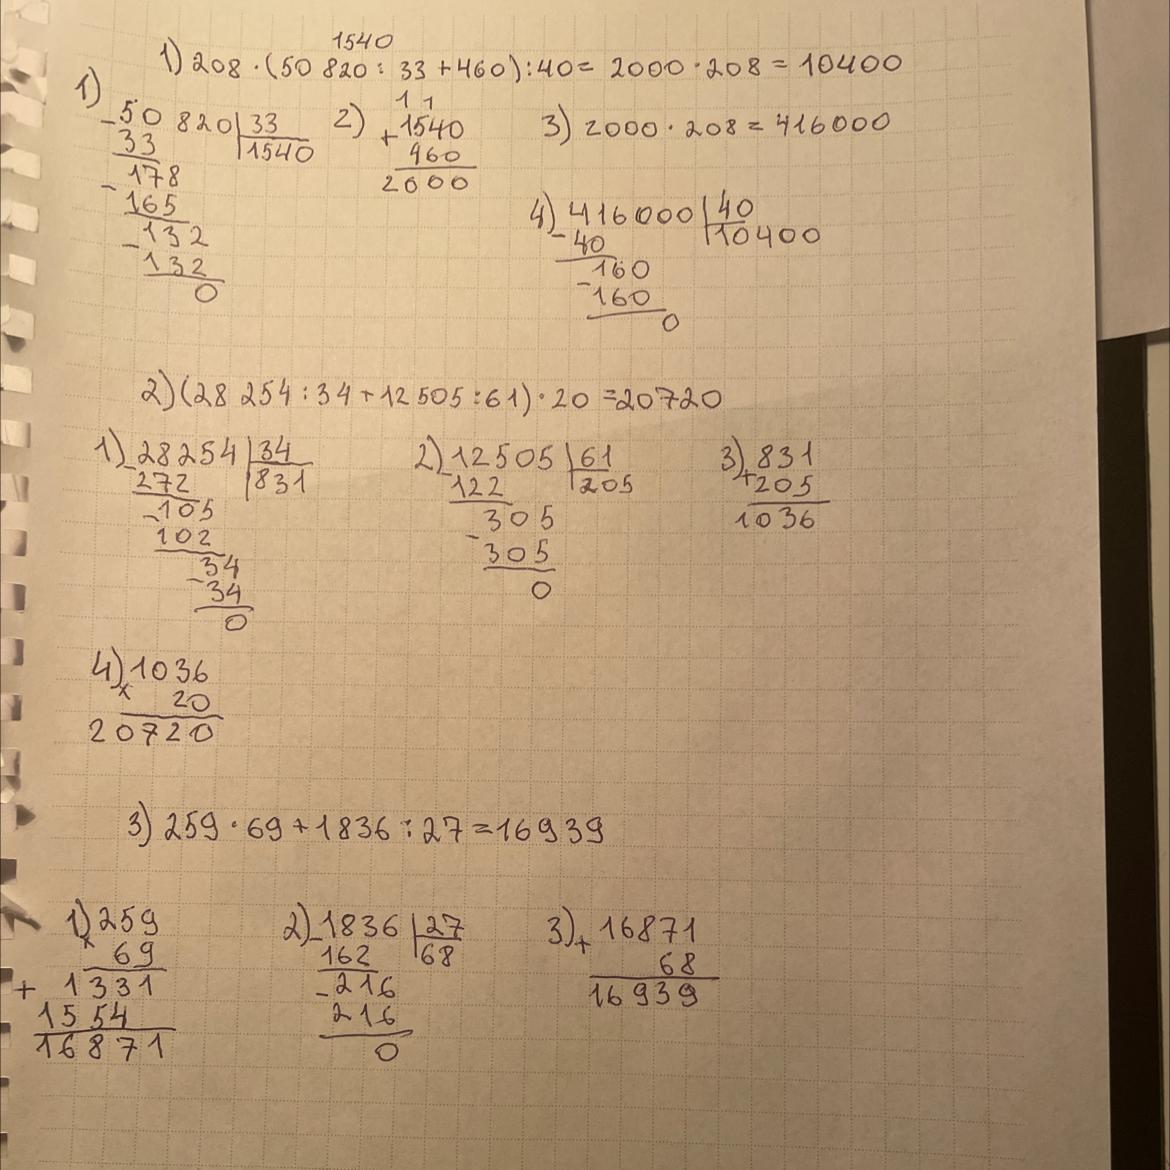 1540
1) 208 · (50 820 : 33 + 460) : 40 = 2000 · 208 = 10400
1)
- 50 820 | 33
33 | 1540
178
- 165
132
- 132
0
2) 1 1
+ 1540
460
2000
3) 2000 · 208 = 416000
4) - 416000 | 40
40 | 10400
160
- 160
0
2) (28 254 : 34 + 12 505 : 61) · 20 = 20720
1) - 28254 | 34
272 | 831
- 105
102
34
- 34
0
2) - 12505 | 61
122 | 205
305
- 305
0
3) + 831
205
1036
4) x 1036
20
20720
3) 259 · 69 + 1836 : 27 = 16939
1) x 259
69
+ 1331
1554
16871
2) - 1836 | 27
162 | 68
- 216
216
0
3) + 16871
68
16939